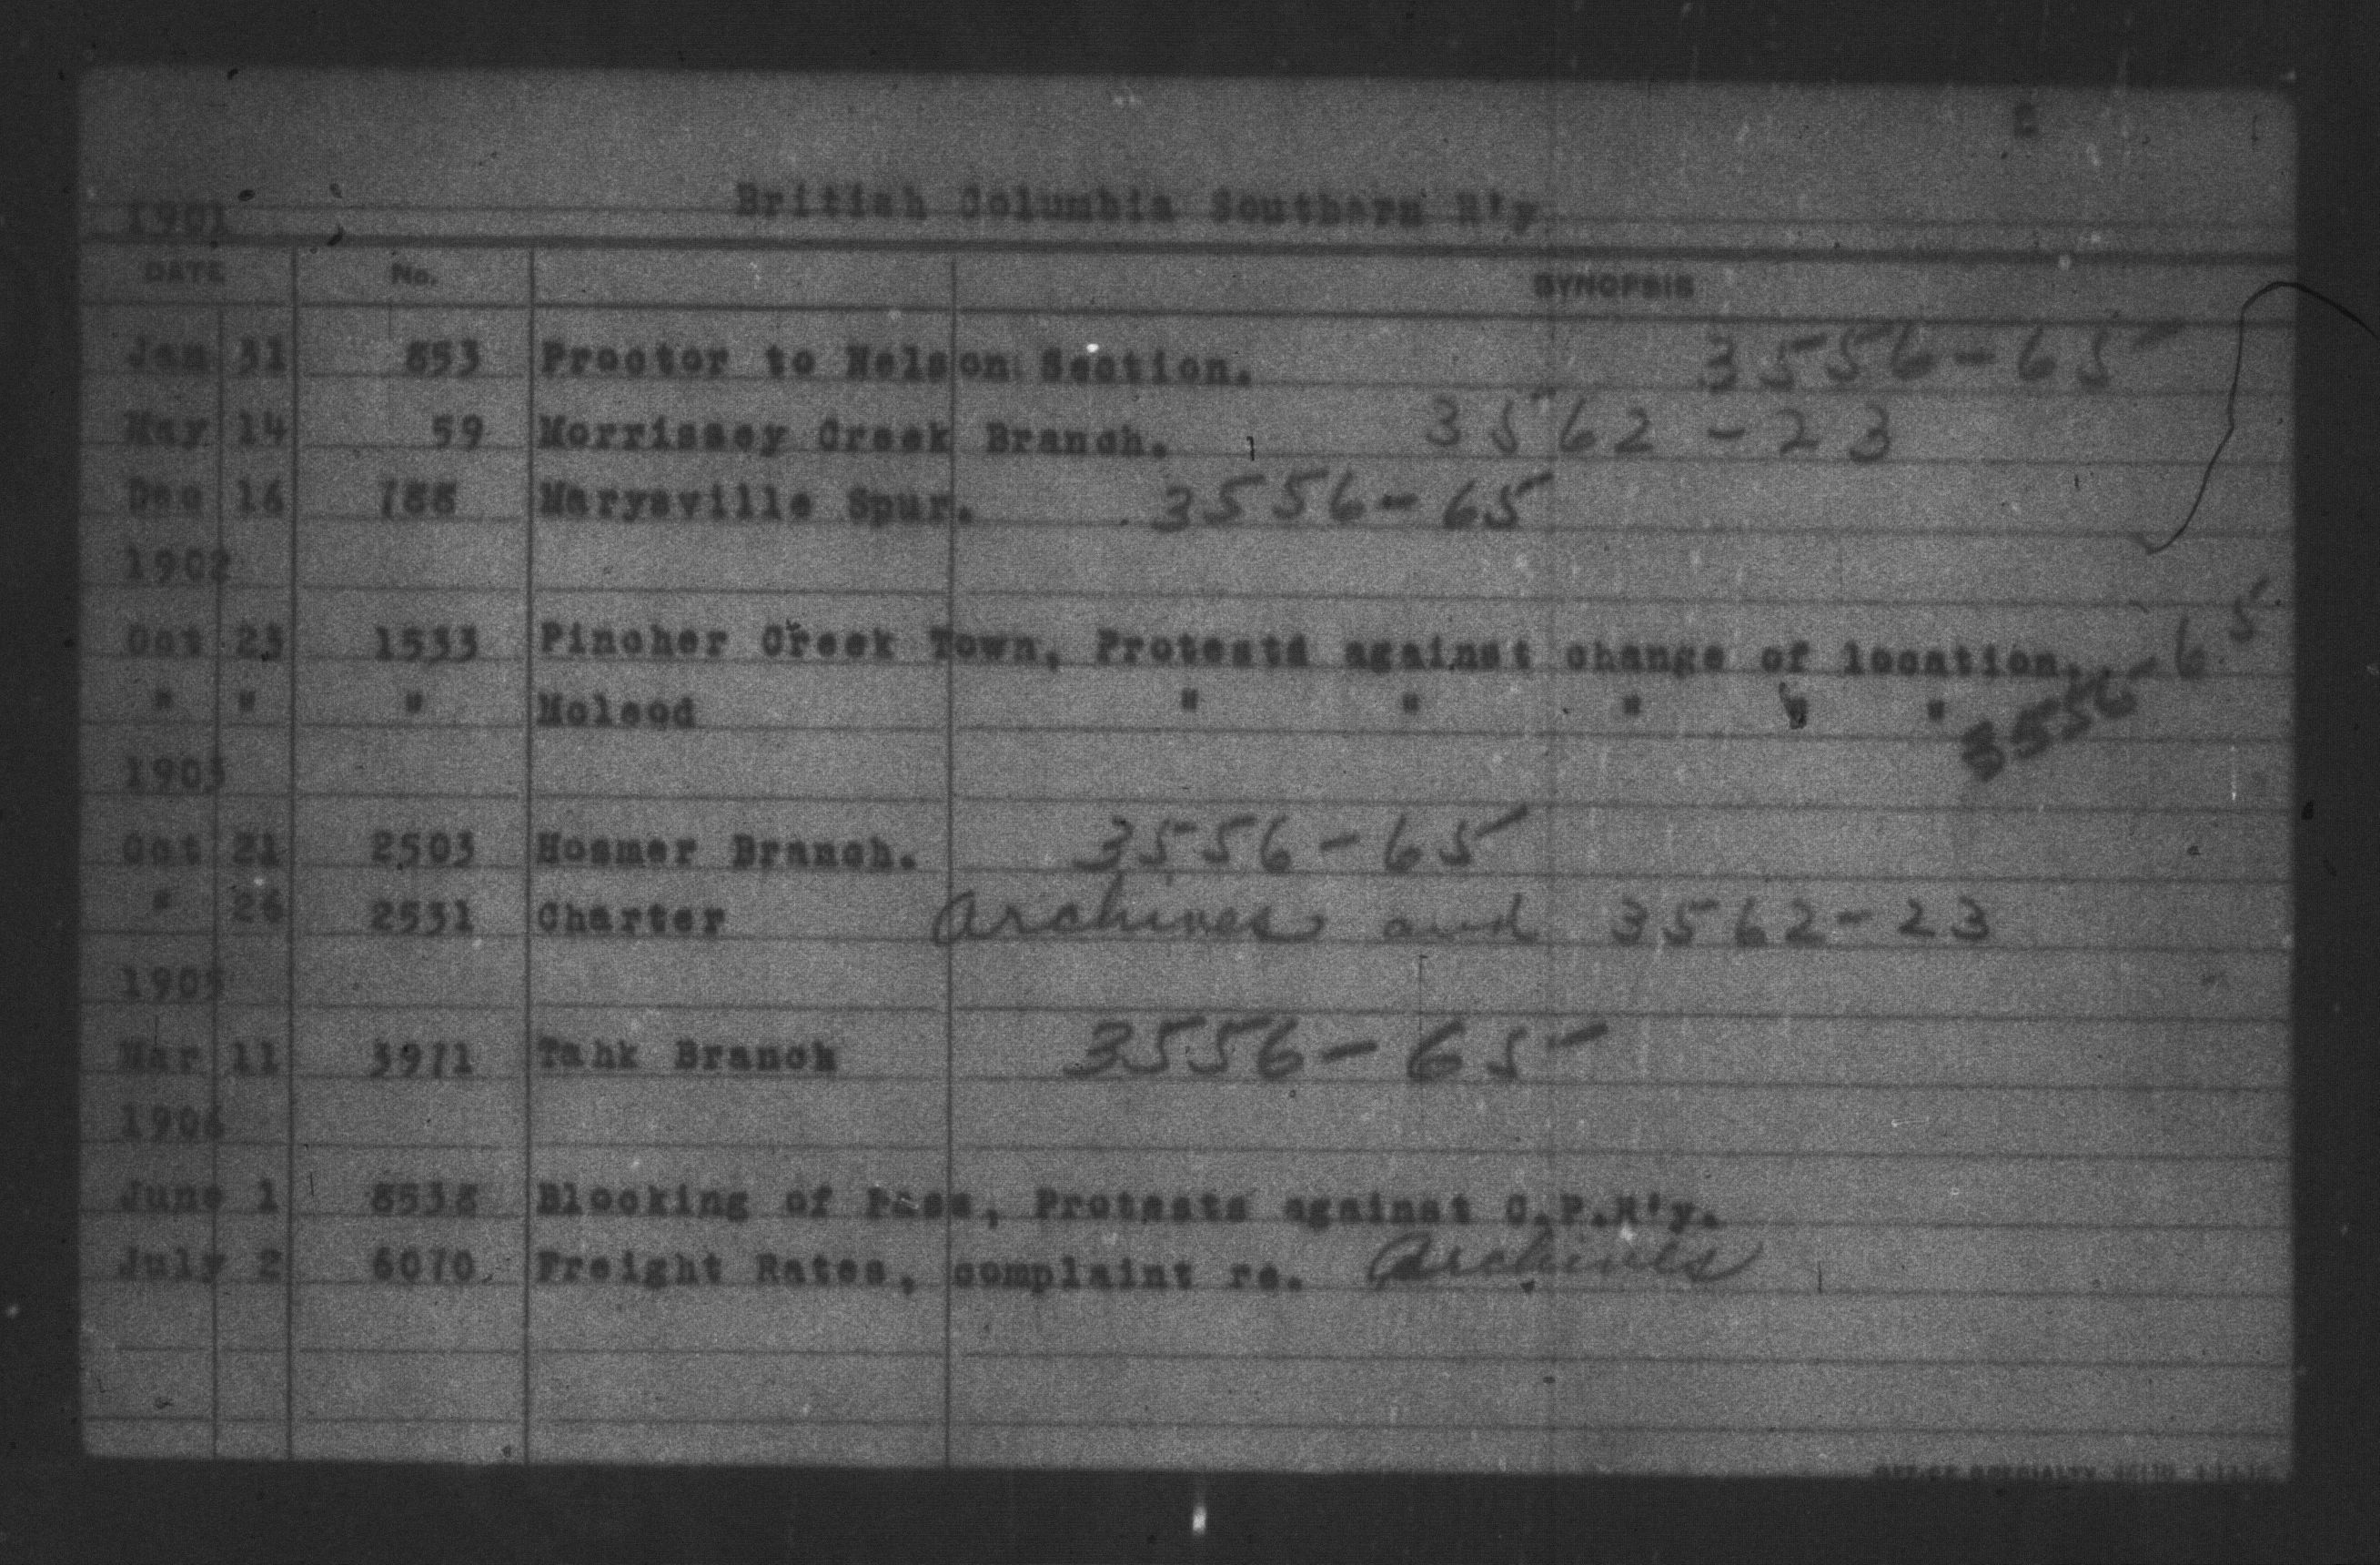 2
British Columbia Southern R'y
1901
DATE No. SYNOPSIS
Jan 31 853 Proctor to Nelson Section. 3556-65
May 14 59 Morrissey Creek Branch. 3562-23
Dec 16 788 Marysville Spur. 3556-65
1902
Oct 23 1533 Pincher Creek Town, Protests against change of location. 3556-65
" " " Mcleod " " " " "
1903
Oct 21 2503 Hosmer Branch. 3556-65
" 26 2531 Charter Archives and 3562-23
1905
Mar 11 3971 Yahk Branch 3556-65
1906
June 1 8538 Blocking of Pass, Protests against C.P.R'y.
July 2 6070 Freight Rates, complaint re. Archives
OFFICE SPECIALTY